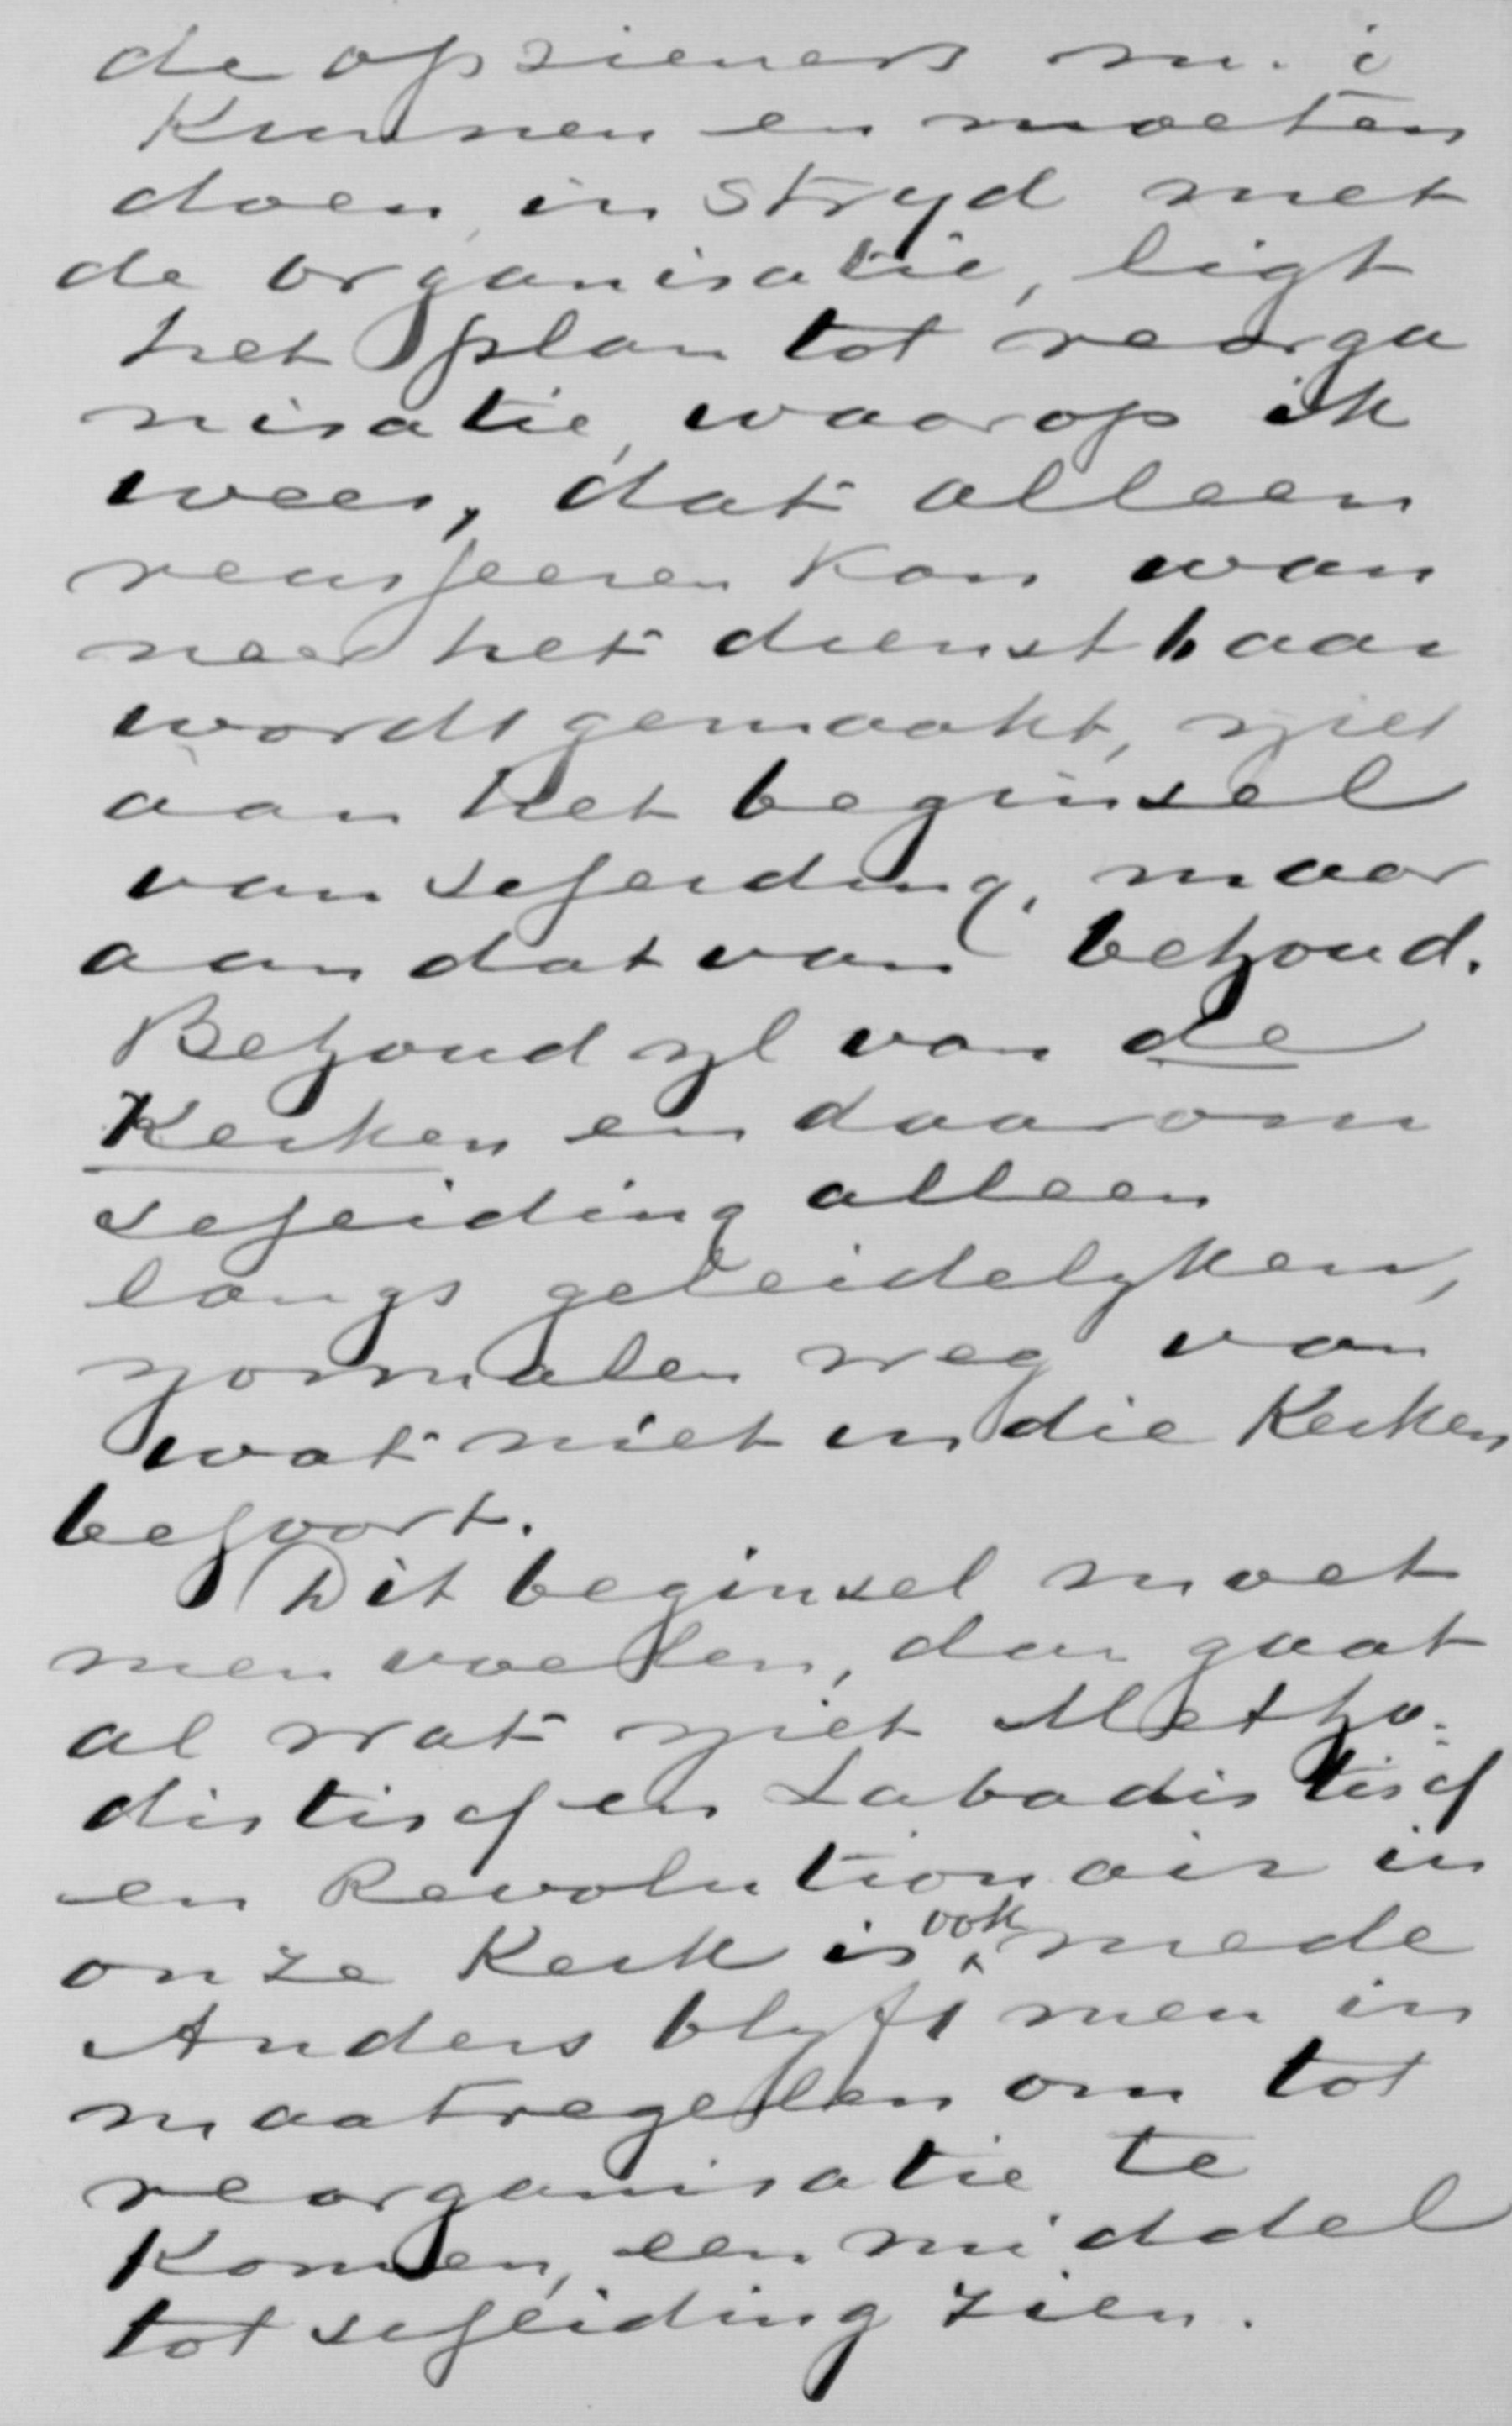 de opzieners m. i
kunnen en moeten
doen, in stryd met
de organisatie, ligt
het plan tot reorga
nisatie, waarop ik
wees, dat alleen
reusseeren kan wan
neer het dienstbaar
wordt gemaakt, niet
aan het beginsel
van scheiding, maar
aan dat van behoud.
Behoud nl van de
Kerken en daarom
scheiding alleen
langs geleidelyken,
normalen weg van
wat niet in die Kerken
behoort.
Dit beginsel moet
men voelen, dan gaat
al wat niet Metho-
distisch en Labadistisch
en Revolutionair in
onze Kerk is, ook mede
Anders blyft men in
maatregelen om tot
reorganisatie te
komen, een middel
tot scheiding zien.